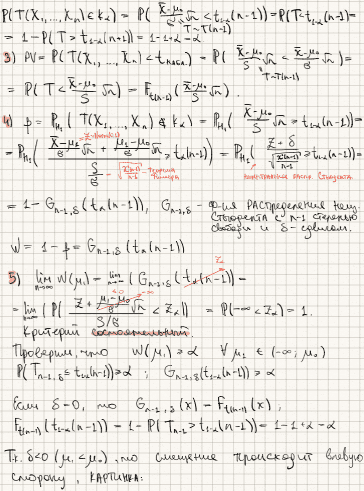 P(T(X₁,...,Xₙ) ∈ K_α) = P( (X̄-μ₀)/S √n < t_{1-α}(n-1)) = P(T < t_{1-α}(n-1)) =
T~T(n-1)
= 1 - P(T ≥ t_{1-α}(n-1)) = 1-1+α = α
3) PV = P(T(X₁,...,Xₙ) < t_набл) = P( (X̄-μ₀)/S √n < (x̄-μ₀)/S √n) =
T~T(n-1)
= P(T < (x̄-μ₀)/S √n) = F_{t(n-1)}((x̄-μ₀)/S √n).
4) β = P_{H₁}(T(X₁,...,Xₙ) ∉ K_α) = P_{H₁}( (X̄-μ₀)/S √n ≥ t_{1-α}(n-1)) =
= P_{H₁}( ((X̄-μ₁)/σ √n + (μ₁-μ₀)/σ √n) / (S/σ) ≥ t_α(n-1)) = P_{H₁}( (Z+δ)/√(χ²(n-1)/(n-1)) ≥ t_{1-α}(n-1)) =
√(χ²(n-1)/(n-1)) - Теорема Фишера
= 1 - G_{n-1,δ}(t_α(n-1)), G_{n-1,δ} - ф-ия распределения нец.
Стьюдента с n-1 степенью
свободы и δ-сдвигом.
W = 1 - β = G_{n-1,δ}(t_α(n-1))
5) lim_{n→∞} W(μ₁) = lim_{n→∞} (G_{n-1,δ}(t_α(n-1))) =
= lim_{n→∞} (P( (Z + (μ₁-μ₀)/σ √n)/(S/σ) < Z_α)) = P(-∞ < Z_α) = 1.
Критерий состоятельный.
Проверим, что W(μ₁) ≥ α ∀ μ₁ ∈ (-∞; μ₀)
P(T_{n-1,δ} ≤ t_{1-α}(n-1)) ≥ α ; G_{n-1,δ}(t_{1-α}(n-1)) ≥ α
Если δ=0, то G_{n-1,δ}(x) = F_{t(n-1)}(x) ,
F_{t(n-1)}(t_{1-α}(n-1)) = 1 - P(T_{n-1} > t_{1-α}(n-1)) = 1-1+α = α
Т.к. δ<0 (μ₁<μ₀), то смещение происходит влевую
сторону, картинка: